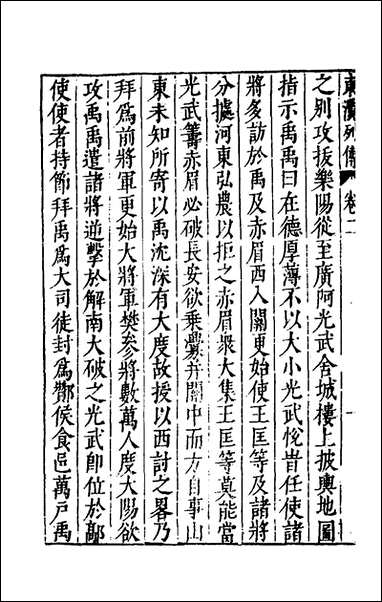 東漢列傳 卷二
之别攻拔樂陽從至廣阿光武舍城樓上披輿地圖
指示禹禹曰在德厚薄不以大小光武悅甞任使諸
將多訪於禹及赤眉西入關更始使王匡等及諸將
分據河東弘農以拒之赤眉衆大集王匡等莫能當
光武籌赤眉必破長安欲乗釁并關中而方自事山
東未知所寄以禹沈深有大度故授以西討之畧乃
拜爲前將軍更始大將軍樊參將數萬人度大陽欲
攻禹禹遣諸將逆擊於解南大破之光武卽位於鄗
使使者持節拜禹爲大司徒封爲酇侯食邑萬户禹